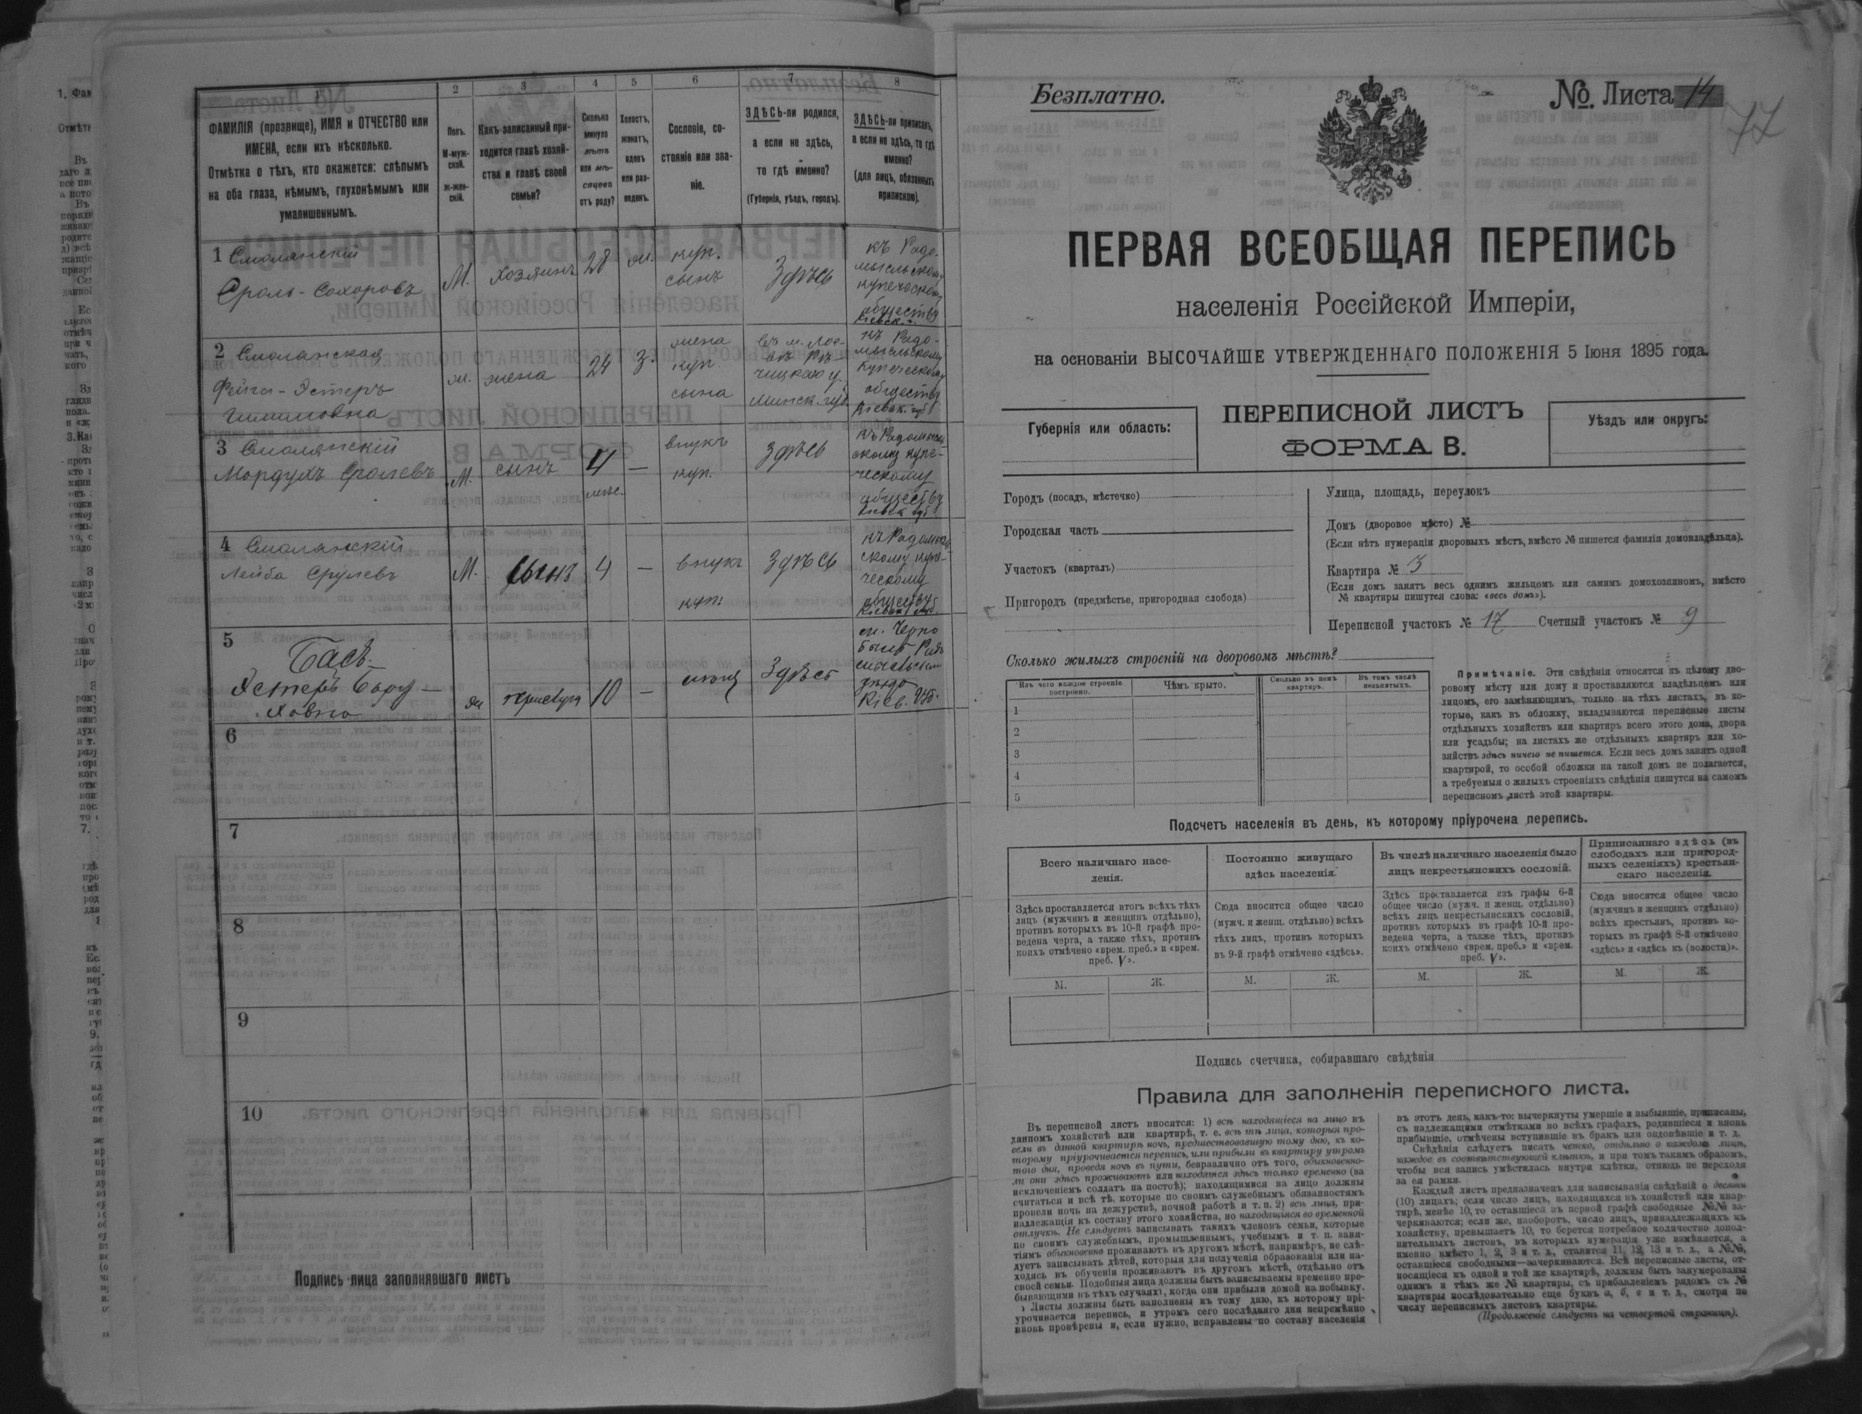 1
2
3
4
5
6
7
8
ФАМИЛІЯ (прозвище), ИМЯ и ОТЧЕСТВО или
ИМЕНА, если ихъ нѣсколько.
Отмѣтка о тѣхъ, кто окажется: слѣпымъ
на оба глаза, нѣмымъ, глухонѣмымъ или
умалишеннымъ.
Полъ.
М-муж-
ской.
Ж-жен-
скій.
Какъ записанный при-
ходится главѣ хозяй-
ства и главѣ своей
семьи?
Сколько
минуло
лѣтъ
или мѣ-
сяцевъ
отъ роду?
Холостъ,
женатъ,
вдовъ
или раз-
веденъ.
Сословіе, со-
стояніе или зва-
ніе.
ЗДѢСЬ-ли родился,
а если не здѣсь,
то гдѣ именно?
(Губернія, уѣздъ, городъ).
ЗДѢСЬ-ли приписанъ,
а если не здѣсь, то гдѣ
именно?
(для лицъ, обязанныхъ
припискою).
1 Смолянскій
Сроль-Сохоровъ
М. хозяинъ 28 ж.
куп.
сынъ
Здѣсь
къ Радо-
мысльскому
купеческому
обществу
2 Смолянская
Фейга-Эстеръ
ж. жена 24 з.
жена
куп.
сына
чицкаго у.
Минск. губ.
къ Радо-
мысльскому
купеческому
обществу
Кіевск. губ.
3 Смолянскій
Мордухъ Сролевъ
М. сынъ 4 —
мѣс.
внукъ
куп.
Здѣсь
къ Радомысль-
скому купе-
ческому
обществу
Кіевск. губ.
4 Смолянскій
Лейба Срулевъ
М. сынъ 4 —
внукъ
куп.
Здѣсь
къ Радомысль-
скому купе-
ческому
обществу
Кіевск. губ.
5
Басъ
Эстеръ Бору-
ховна
ж прислуга 10 —
Здѣсь
м. Черно
Кіев. губ.
6
7
8
9
10
Подпись лица заполнявшаго листъ
Безплатно.
№. Листа 14
77
ПЕРВАЯ ВСЕОБЩАЯ ПЕРЕПИСЬ
населенія Россійской Имперіи,
на основаніи ВЫСОЧАЙШЕ УТВЕРЖДЕННАГО ПОЛОЖЕНІЯ 5 Іюня 1895 года.
Губернія или область:
ПЕРЕПИСНОЙ ЛИСТЪ
ФОРМА В.
Уѣздъ или округъ:
Городъ (посадъ, мѣстечко)
Городская часть
Участокъ (кварталъ)
Пригородъ (предмѣстье, пригородная слобода)
Улица, площадь, переулокъ
Домъ (дворовое мѣсто) №
(Если нѣтъ нумераціи дворовыхъ мѣстъ, вмѣсто № пишется фамилія домовладѣльца).
Квартира № 3
(Если домъ занятъ весь однимъ жильцомъ или самимъ домохозяиномъ, вмѣсто
№ квартиры пишутся слова: «весь домъ»).
Переписной участокъ № 17 Счетный участокъ № 9
Сколько жилыхъ строеній на дворовомъ мѣстѣ?
Изъ чего каждое строеніе
построено.
Чѣмъ крыто.
Сколько въ немъ
квартиръ.
Въ томъ числѣ
незанятыхъ.
1
2
3
4
5
Примѣчаніе. Эти свѣдѣнія относятся къ цѣлому дво-
ровому мѣсту или дому и проставляются владѣльцемъ или
лицомъ, его замѣняющимъ, только на тѣхъ листахъ, въ ко-
торые, какъ въ обложку, вкладываются переписные листы
отдѣльныхъ хозяйствъ или квартиръ всего этого дома, двора
или усадьбы; на листахъ же отдѣльныхъ квартиръ или хо-
зяйствъ здѣсь ничего не пишется. Если весь домъ занятъ одной
квартирой, то особой обложки на такой домъ не полагается,
а требуемыя о жилыхъ строеніяхъ свѣдѣнія пишутся на самомъ
переписномъ листѣ этой квартиры.
Подсчетъ населенія въ день, къ которому пріурочена перепись.
Всего наличнаго насе-
ленія.
Постоянно живущаго
здѣсь населенія.
Въ числѣ наличнаго населенія было
лицъ некрестьянскихъ сословій.
Приписаннаго здѣсь (въ
слободахъ или пригород-
ныхъ селеніяхъ) крестьян-
скаго населенія.
Здѣсь проставляется итогъ всѣхъ тѣхъ
лицъ (мужчинъ и женщинъ отдѣльно),
противъ которыхъ въ 10-й графѣ про-
ведена черта, а также тѣхъ, противъ
коихъ отмѣчено «врем. преб.» и «врем.
преб. V».
Сюда вносится общее число
(мужч. и женщ. отдѣльно) всѣхъ
тѣхъ лицъ, противъ которыхъ
въ 9-й графѣ отмѣчено «здѣсь».
Здѣсь проставляется изъ графы 6-й
общее число (мужч. и женщ. отдѣльно)
всѣхъ лицъ некрестьянскихъ сословій,
противъ которыхъ въ графѣ 10-й про-
ведена черта, а также тѣхъ, противъ
коихъ отмѣчено «врем. преб.» и «врем.
преб. V».
Сюда вносится общее число
(мужчинъ и женщинъ отдѣльно)
всѣхъ крестьянъ, противъ ко-
торыхъ въ графѣ 8-й отмѣчено
«здѣсь» и «здѣсь къ (волости)».
М. Ж. М. Ж. М. Ж. М. Ж.
Подпись счетчика, собиравшаго свѣдѣнія
Правила для заполненія переписного листа.
Въ переписной листъ вносятся: 1) всѣ находящіеся на лицо въ
данномъ хозяйствѣ или квартирѣ, т. е. всѣ тѣ лица, которыя про-
вели въ данной квартирѣ ночь, предшествовавшую тому дню, къ ко-
торому пріурочивается перепись, или прибыли въ квартиру утромъ
того дня, проведя ночь въ пути, безразлично отъ того, обыкновенно-
ли они здѣсь проживаютъ или находятся здѣсь только временно (за
исключеніемъ солдатъ на постоѣ); находящимися на лицо должны
считаться и всѣ тѣ, которые по своимъ служебнымъ обязанностямъ
провели ночь на дежурствѣ, ночной работѣ и т. п. 2) всѣ лица, при-
надлежащія къ составу этого хозяйства, но находящіяся во временной
отлучкѣ. Не слѣдуетъ записывать такихъ членовъ семьи, которые
по своимъ служебнымъ, промышленнымъ, учебнымъ и т. п. заня-
тіямъ обыкновенно проживаютъ въ другомъ мѣстѣ, напримѣръ, не слѣ-
дуетъ записывать дѣтей, которыя для полученія образованія или на-
ходясь въ обученіи проживаютъ въ другомъ мѣстѣ, отдѣльно отъ
своей семьи. Подобныя лица должны быть записываемы временно пре-
бывающими въ тѣхъ случаяхъ, когда они прибыли домой на побывку.
Листы должны быть заполнены къ тому дню, къ которому прі-
урочивается перепись, и утромъ сего послѣдняго дня непремѣнно
вновь провѣрены и, если нужно, исправлены по составу населенія
въ этотъ день, какъ-то: вычеркнуты умершіе и выбывшіе, приписаны,
съ надлежащими отмѣтками во всѣхъ графахъ, родившіеся и вновь
прибывшіе, отмѣчены вступившіе въ бракъ или овдовѣвшіе и т. д.
Свѣдѣнія слѣдуетъ писать четко, отдѣльно о каждомъ лицѣ,
каждое въ соотвѣтствующей клѣткѣ, и при томъ такимъ образомъ,
чтобы вся запись умѣстилась внутри клѣтки, отнюдь не переходя
за ея рамки.
Каждый листъ предназначенъ для записыванія свѣдѣній о десяти
(10) лицахъ; если число лицъ, находящихся въ хозяйствѣ или квар-
тирѣ, менѣе 10, то оставшіеся въ первой графѣ свободные №№ за-
черкиваются; если же, наоборотъ, число лицъ, принадлежащихъ къ
хозяйству, превышаетъ 10, то берется потребное количество допол-
нительныхъ листовъ, въ которыхъ нумерація уже измѣняется, а
именно вмѣсто 1, 2, 3 и т. д., ставится 11, 12, 13 и т. д., а №№,
оставшіеся свободными—зачеркиваются. Всѣ переписные листы, от-
носящіеся къ одной и той же квартирѣ, должны быть занумерованы
однимъ и тѣмъ же № квартиры, съ прибавленіемъ рядомъ съ №
квартиры послѣдовательно еще буквъ а, б, в и т. д., смотря по
числу переписныхъ листовъ квартиры.
(Продолженіе слѣдуетъ на четвертой страницѣ).